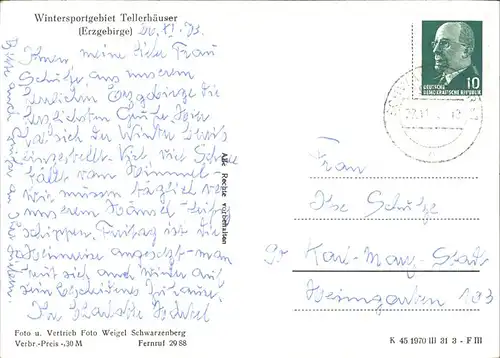 Wintersportgebiet Tellerhäuser
(Erzgebirge)
26.XI.73.
Ihnen, meine liebe Frau
Schulze, aus unserem
herrlichen Erzgebirge die
herzlichsten Grüße. Hier
hat sich der Winter bereits
eingestellt. Viel Schnee
fällt vom Himmel
wir müssen täglich vor
unserem Häusel
schippen. Freitag ist die
Heimreise angesetzt - man
muß sich auch wieder auf
sein bescheidenes Zuhause
Ihre Charlotte
Alle Rechte vorbehalten
10
DEUTSCHE
DEMOKRATISCHE REPUBLIK
Frau
Ilse Schulze
90 Karl-Marx-Stadt
Heimgarten 103
Foto u. Vertrieb Foto Weigel Schwarzenberg
Verbr.-Preis -,30 M Fernruf 2988
K 45 1970 III 31 3 - F III